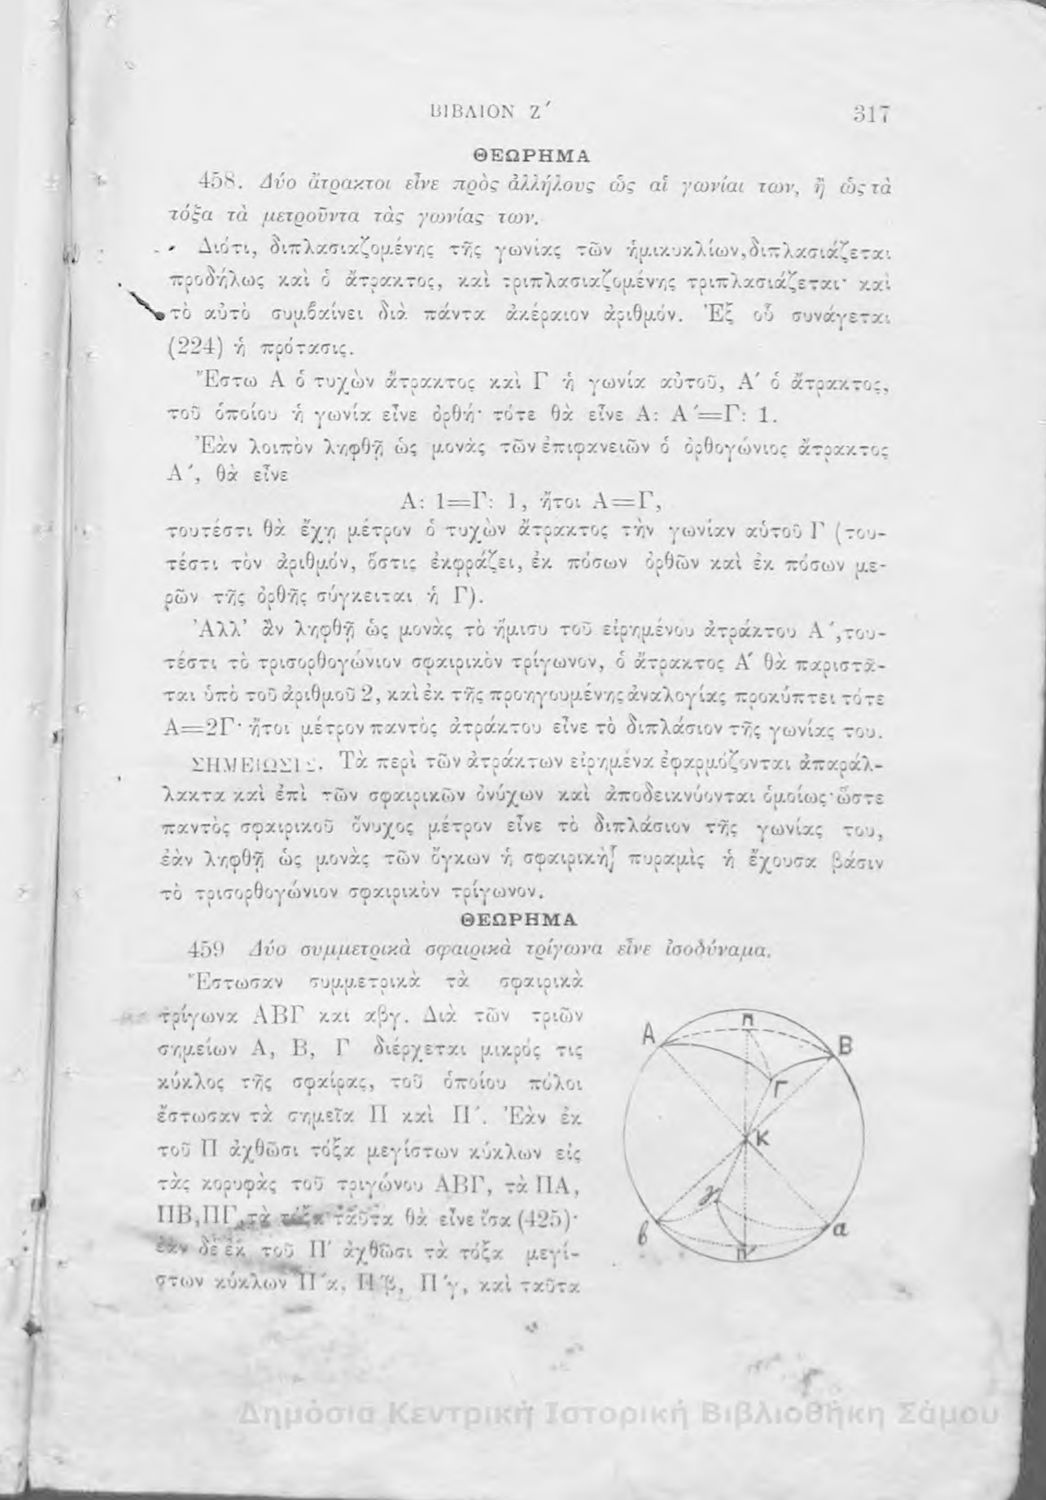 ΒΙΒΛΙΟΝ Ζ΄ 317
ΘΕΩΡΗΜΑ
458. Δύο ἄτρακτοι εἶνε πρὸς ἀλλήλους ὡς αἱ γωνίαι των, ἢ ὡς τὰ
τόξα τὰ μετροῦντα τὰς γωνίας των.
Διότι, διπλασιαζομένης τῆς γωνίας τῶν ἡμικυκλίων, διπλασιάζεται
προδήλως καὶ ὁ ἄτρακτος, καὶ τριπλασιαζομένης τριπλασιάζεται· καὶ
τὸ αὐτὸ συμβαίνει διὰ πάντα ἀκέραιον ἀριθμόν. Ἐξ οὗ συνάγεται
(224) ἡ πρότασις.
Ἔστω Α ὁ τυχὼν ἄτρακτος καὶ Γ ἡ γωνία αὐτοῦ, Α΄ ὁ ἄτρακτος,
τοῦ ὁποίου ἡ γωνία εἶνε ὀρθή· τότε θὰ εἶνε Α: Α΄=Γ: 1.
Ἐὰν λοιπὸν ληφθῇ ὡς μονὰς τῶν ἐπιφανειῶν ὁ ὀρθογώνιος ἄτρακτος
Α΄, θὰ εἶνε
Α: 1=Γ: 1, ἤτοι Α=Γ,
τουτέστι θὰ ἔχῃ μέτρον ὁ τυχὼν ἄτρακτος τὴν γωνίαν αὑτοῦ Γ (του-
τέστι τὸν ἀριθμόν, ὅστις ἐκφράζει, ἐκ πόσων ὀρθῶν καὶ ἐκ πόσων με-
ρῶν τῆς ὀρθῆς σύγκειται ἡ Γ).
Ἀλλ’ ἂν ληφθῇ ὡς μονὰς τὸ ἥμισυ τοῦ εἰρημένου ἀτράκτου Α΄, του-
τέστι τὸ τρισορθογώνιον σφαιρικὸν τρίγωνον, ὁ ἄτρακτος Α΄ θὰ παριστᾶ-
ται ὑπὸ τοῦ ἀριθμοῦ 2, καὶ ἐκ τῆς προηγουμένης ἀναλογίας προκύπτει τότε
Α=2Γ· ἤτοι μέτρον παντὸς ἀτράκτου εἶνε τὸ διπλάσιον τῆς γωνίας του.
ΣΗΜΕΙΩΣΙΣ. Τὰ περὶ τῶν ἀτράκτων εἰρημένα ἐφαρμόζονται ἀπαράλ-
λακτα καὶ ἐπὶ τῶν σφαιρικῶν ὀνύχων καὶ ἀποδεικνύονται ὁμοίως· ὥστε
παντὸς σφαιρικοῦ ὄνυχος μέτρον εἶνε τὸ διπλάσιον τῆς γωνίας του,
ἐὰν ληφθῇ ὡς μονὰς τῶν ὄγκων ἡ σφαιρικὴ πυραμὶς ἡ ἔχουσα βάσιν
τὸ τρισορθογώνιον σφαιρικὸν τρίγωνον.
ΘΕΩΡΗΜΑ
459 Δύο συμμετρικὰ σφαιρικὰ τρίγωνα εἶνε ἰσοδύναμα.
Ἔστωσαν συμμετρικὰ τὰ σφαιρικὰ
τρίγωνα ΑΒΓ και αβγ. Διὰ τῶν τριῶν
σημείων Α, Β, Γ διέρχεται μικρός τις
κύκλος τῆς σφαίρας, τοῦ ὁποίου πόλοι
ἔστωσαν τὰ σημεῖα Π καὶ Π΄. Ἐὰν ἐκ
τοῦ Π ἀχθῶσι τόξα μεγίστων κύκλων εἰς
τὰς κορυφὰς τοῦ τριγώνου ΑΒΓ, τὰ ΠΑ,
ΠΒ, ΠΓ, τὰ τόξα ταῦτα θὰ εἶνε ἴσα (425)·
ἐὰν δὲ ἐκ τοῦ Π΄ ἀχθῶσι τὰ τόξα μεγί-
στων κύκλων Π΄α, Π΄β, Π΄γ, καὶ ταῦτα
Α Π Β
Γ
Κ
γ
β Π΄ α
Δημόσια Κεντρική Ιστορική Βιβλιοθήκη Σάμου